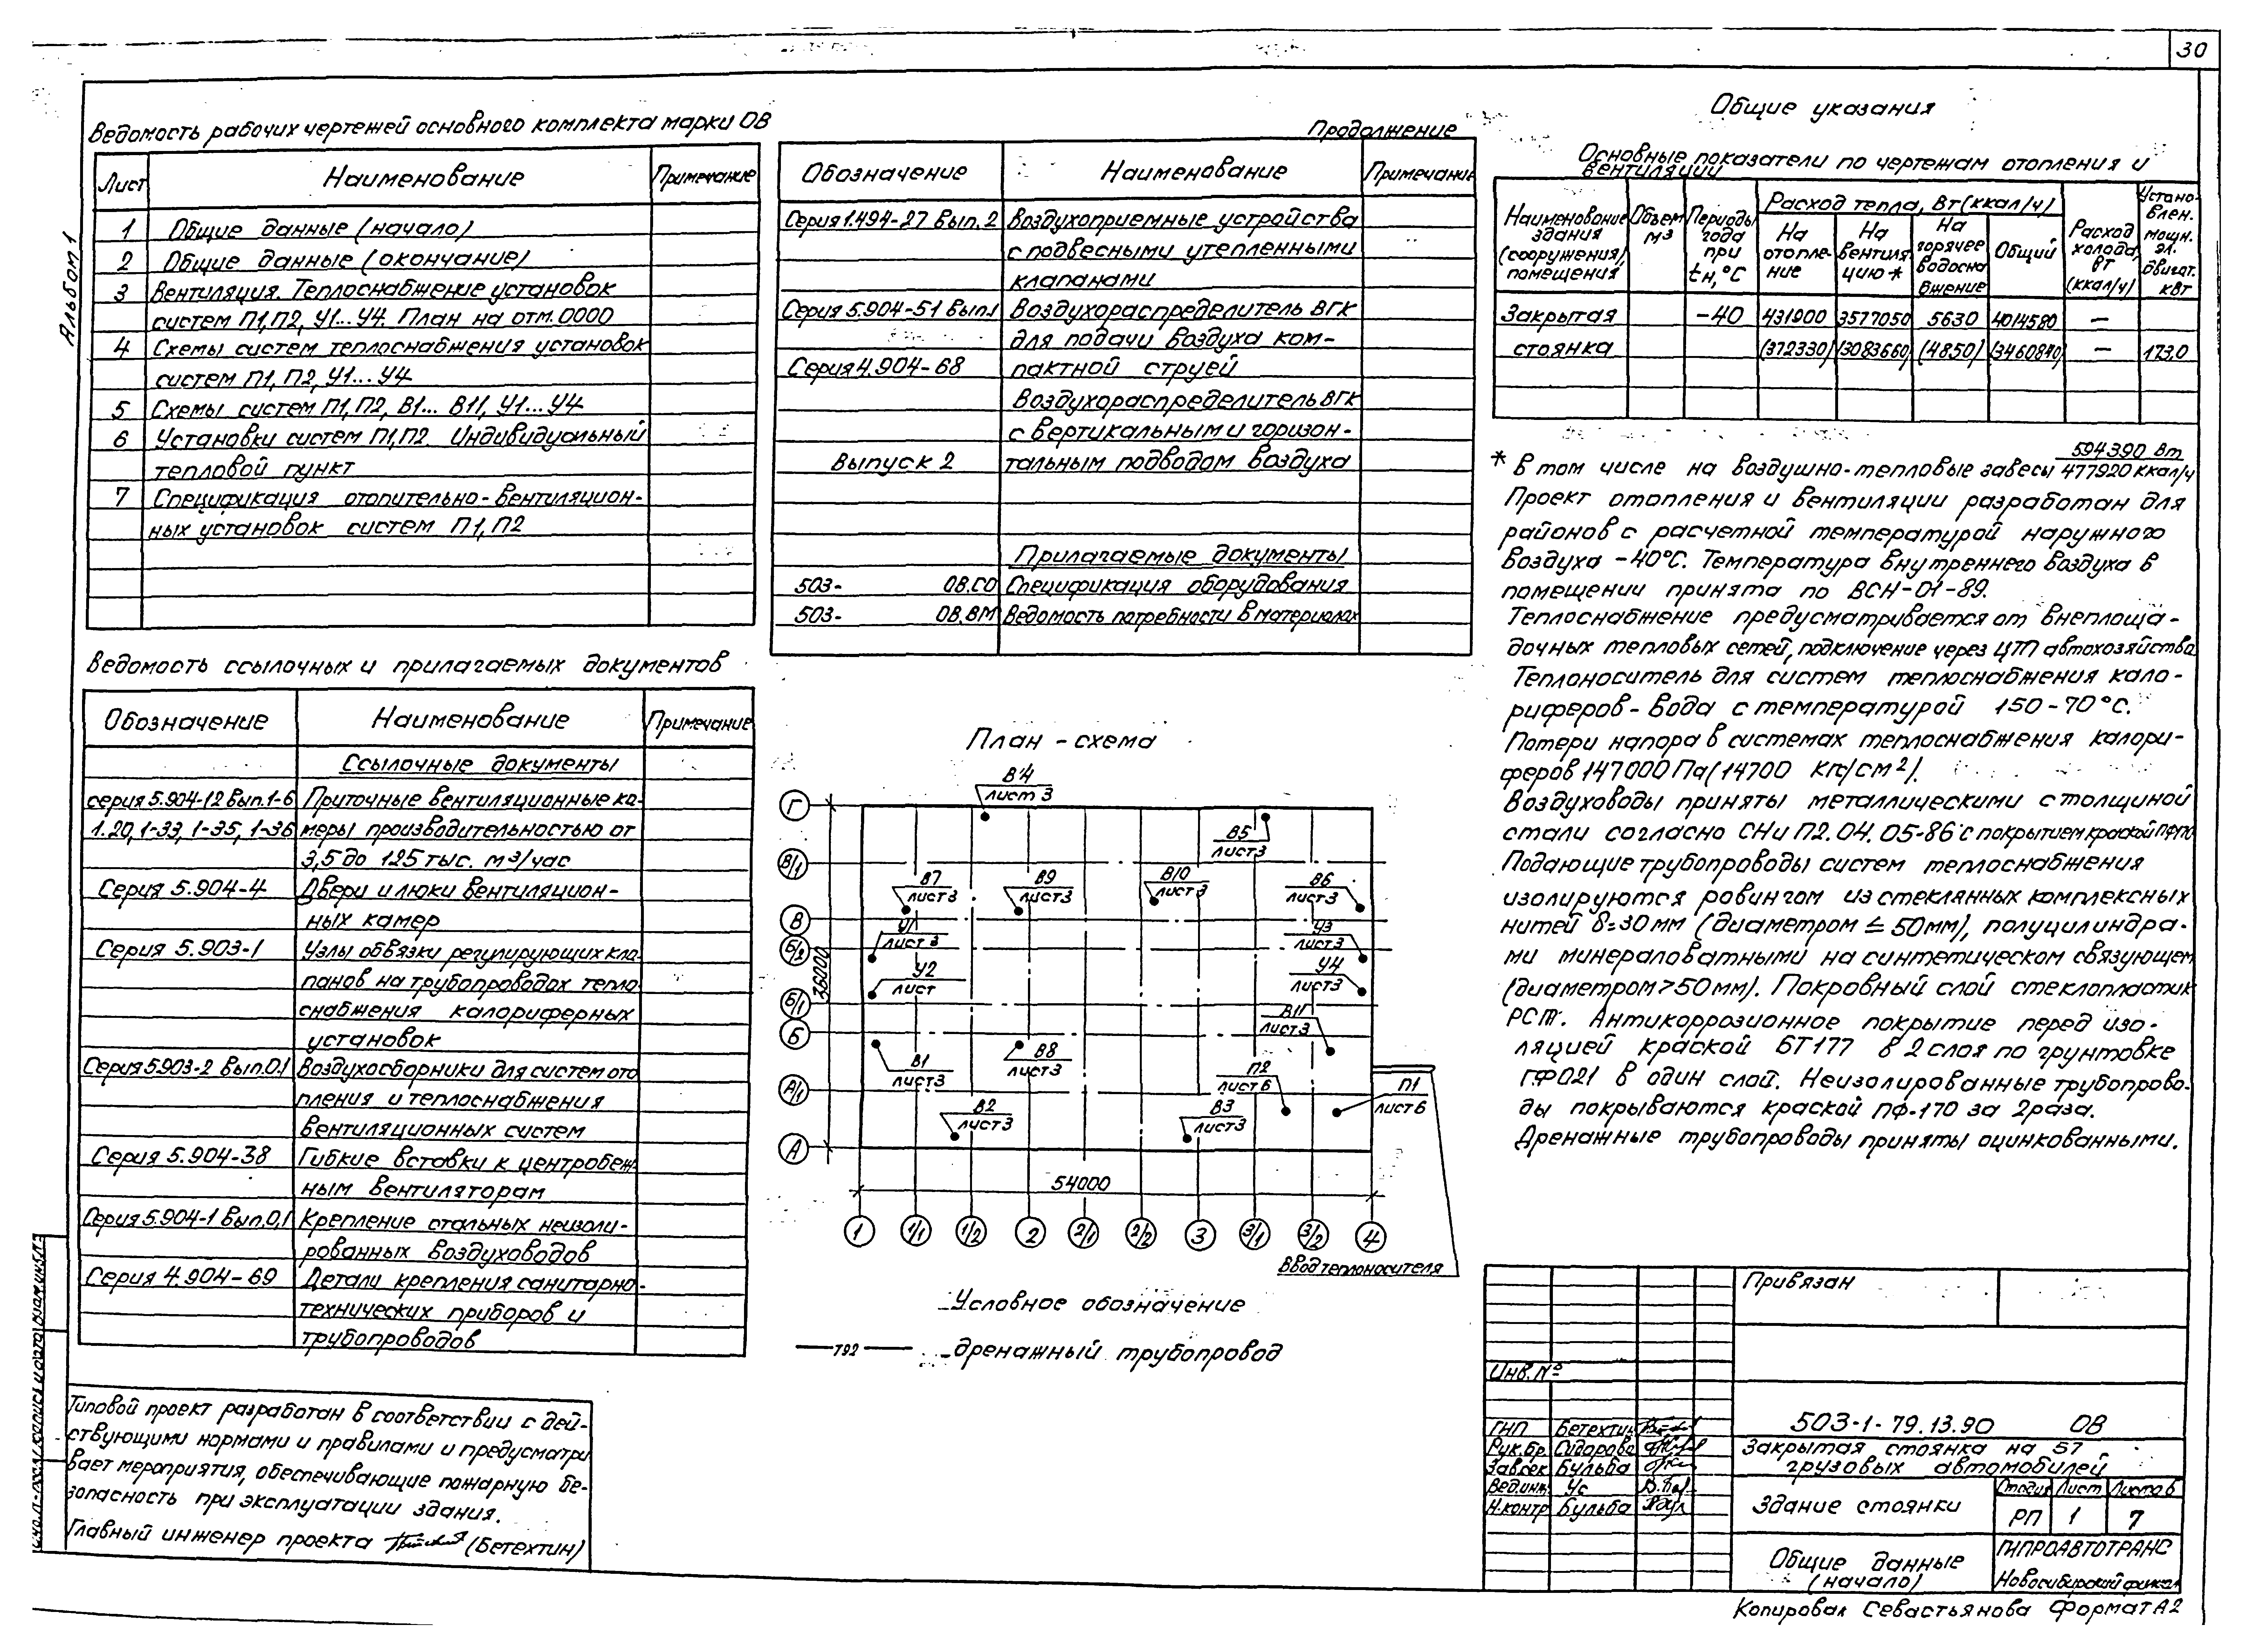 30
Альбом 1
Ведомость рабочих чертежей основного комплекта марки ОВ
Лист Наименование Примечание
1 Общие данные (начало)
2 Общие данные (окончание)
3 Вентиляция. Теплоснабжение установок
систем П1,П2, У1...У4. План на отм. 0000
4 Схемы систем теплоснабжения установок
систем П1, П2, У1...У4
5 Схемы систем П1, П2, В1... В11, У1...У4
6 Установки систем П1,П2 Индивидуальный
тепловой пункт
7 Спецификация отопительно-вентиляцион-
ных установок систем П1, П2
Ведомость ссылочных и прилагаемых документов
Обозначение Наименование Примечание
Ссылочные документы
серия 5.904-12 вып.1-6 Приточные вентиляционные ка-
1.20, 1-33, 1-35, 1-36 меры производительностью от
3,5 до 125 тыс. м³/час
Серия 5.904-4 Двери и люки вентиляцион-
ных камер
Серия 5.903-1 Узлы обвязки регулирующих кла-
панов на трубопроводах тепло-
снабжения калориферных
установок
Серия 5.903-2 Вып.0.1 Воздухосборники для систем ото
пления и теплоснабжения
вентиляционных систем
Серия 5.904-38 Гибкие вставки к центробеж-
ным вентиляторам
Серия 5.904-1 Вып.0,1 Крепление стальных неизоли-
рованных воздуховодов
Серия 4.904-69 Детали крепления санитарно-
технических приборов и
трубопроводов
Типовой проект разработан в соответствии с дей-
ствующими нормами и правилами и предусматри
вает мероприятия, обеспечивающие пожарную бе-
зопасность при эксплуатации здания.
Главный инженер проекта (Бетехтин)
Продолжение
Обозначение Наименование Примечание
Серия 1.494-27 Вып. 2 Воздухоприемные устройства
с подвесными утепленными
клапанами
Серия 5.904-51 Вып.1 Воздухораспределитель ВГК
для подачи воздуха ком-
Серия 4.904-68 пактной струей
Воздухораспределитель ВГК
с вертикальным и горизон-
Выпуск 2 тальным подводом воздуха
Прилагаемые документы
503- ОВ.СО Спецификация оборудования
503- ОВ.ВМ Ведомость потребности в материалах
План-схема
В4
лист 3
Г
В5
лист 3
В/1
В7 В9 В10 В6
лист 3 лист 3 лист 3 лист 3
В
У1 У3
лист 3 лист 3
Б/2
У2 У4
лист лист 3
36000
Б/1
В11
лист 3
Б
В1 В8 П2 П1
лист 3 лист 3 лист 6 лист 6
А/1
В2 В3
лист 3 лист 3
А
54000
1 1/1 1/2 2 2/1 2/2 3 3/1 3/2 4
Ввод теплоносителя
Условное обозначение
Т92 - дренажный трубопровод
Общие указания
Основные показатели по чертежам отопления и
вентиляции
Наименование здания (сооружения), помещения
Объем м³
Периоды года при tн,°С
Расход тепла, Вт (ккал/ч)
На отопле-ние
На вентиля-цию*
На горячее водосна бжение
Общий
Расход холода, Вт (ккал/ч)
Устано-влен. мощн. эл. двигат. кВт
Закрытая -40 431900 3577050 5630 4014580 —
стоянка (372330) (3083660) (4850) (3460840) — 173.0
594390 Вт
* В том числе на воздушно-тепловые завесы 477920 ккал/ч
Проект отопления и вентиляции разработан для
районов с расчетной температурой наружного
воздуха -40°С. Температура внутреннего воздуха в
помещении принята по ВСН-01-89.
Теплоснабжение предусматривается от внеплоща-
дочных тепловых сетей, подключение через ЦТП автохозяйства
Теплоноситель для систем теплоснабжения кало-
риферов - вода с температурой 150-70°С.
Потери напора в системах теплоснабжения калори-
феров 147000 Па (14700 кгс/см²).
Воздуховоды приняты металлическими с толщиной
стали согласно СНиП2.04.05-86 с покрытием краской
Подающие трубопроводы систем теплоснабжения
изолируются ровингом из стеклянных комплексных
нитей δ=30мм (диаметром ≤ 50мм), полуцилиндра-
ми минераловатными на синтетическом связующем
(диаметром >50мм). Покровный слой стеклопластик
РСТ. Антикоррозионное покрытие перед изо-
ляцией краской БТ177 в 2 слоя по грунтовке
ГФ021 в один слой. Неизолированные трубопрово-
ды покрываются краской ПФ-170 за 2 раза.
Дренажные трубопроводы приняты оцинкованными.
Привязан
Инв. №
503-1-79.13.90 ОВ
ГИП Бетехтин
Рук.бр. Сидорова
Зав.сек Бульба
Вед.инж Ус
Н.контр Бульба
Закрытая стоянка на 57
грузовых автомобилей
Здание стоянки
Стадия Лист Листов
РП 1 7
Общие данные
(начало)
ГИПРОАВТОТРАНС
Новосибирский филиал
Копировал Севастьянова Формат А2